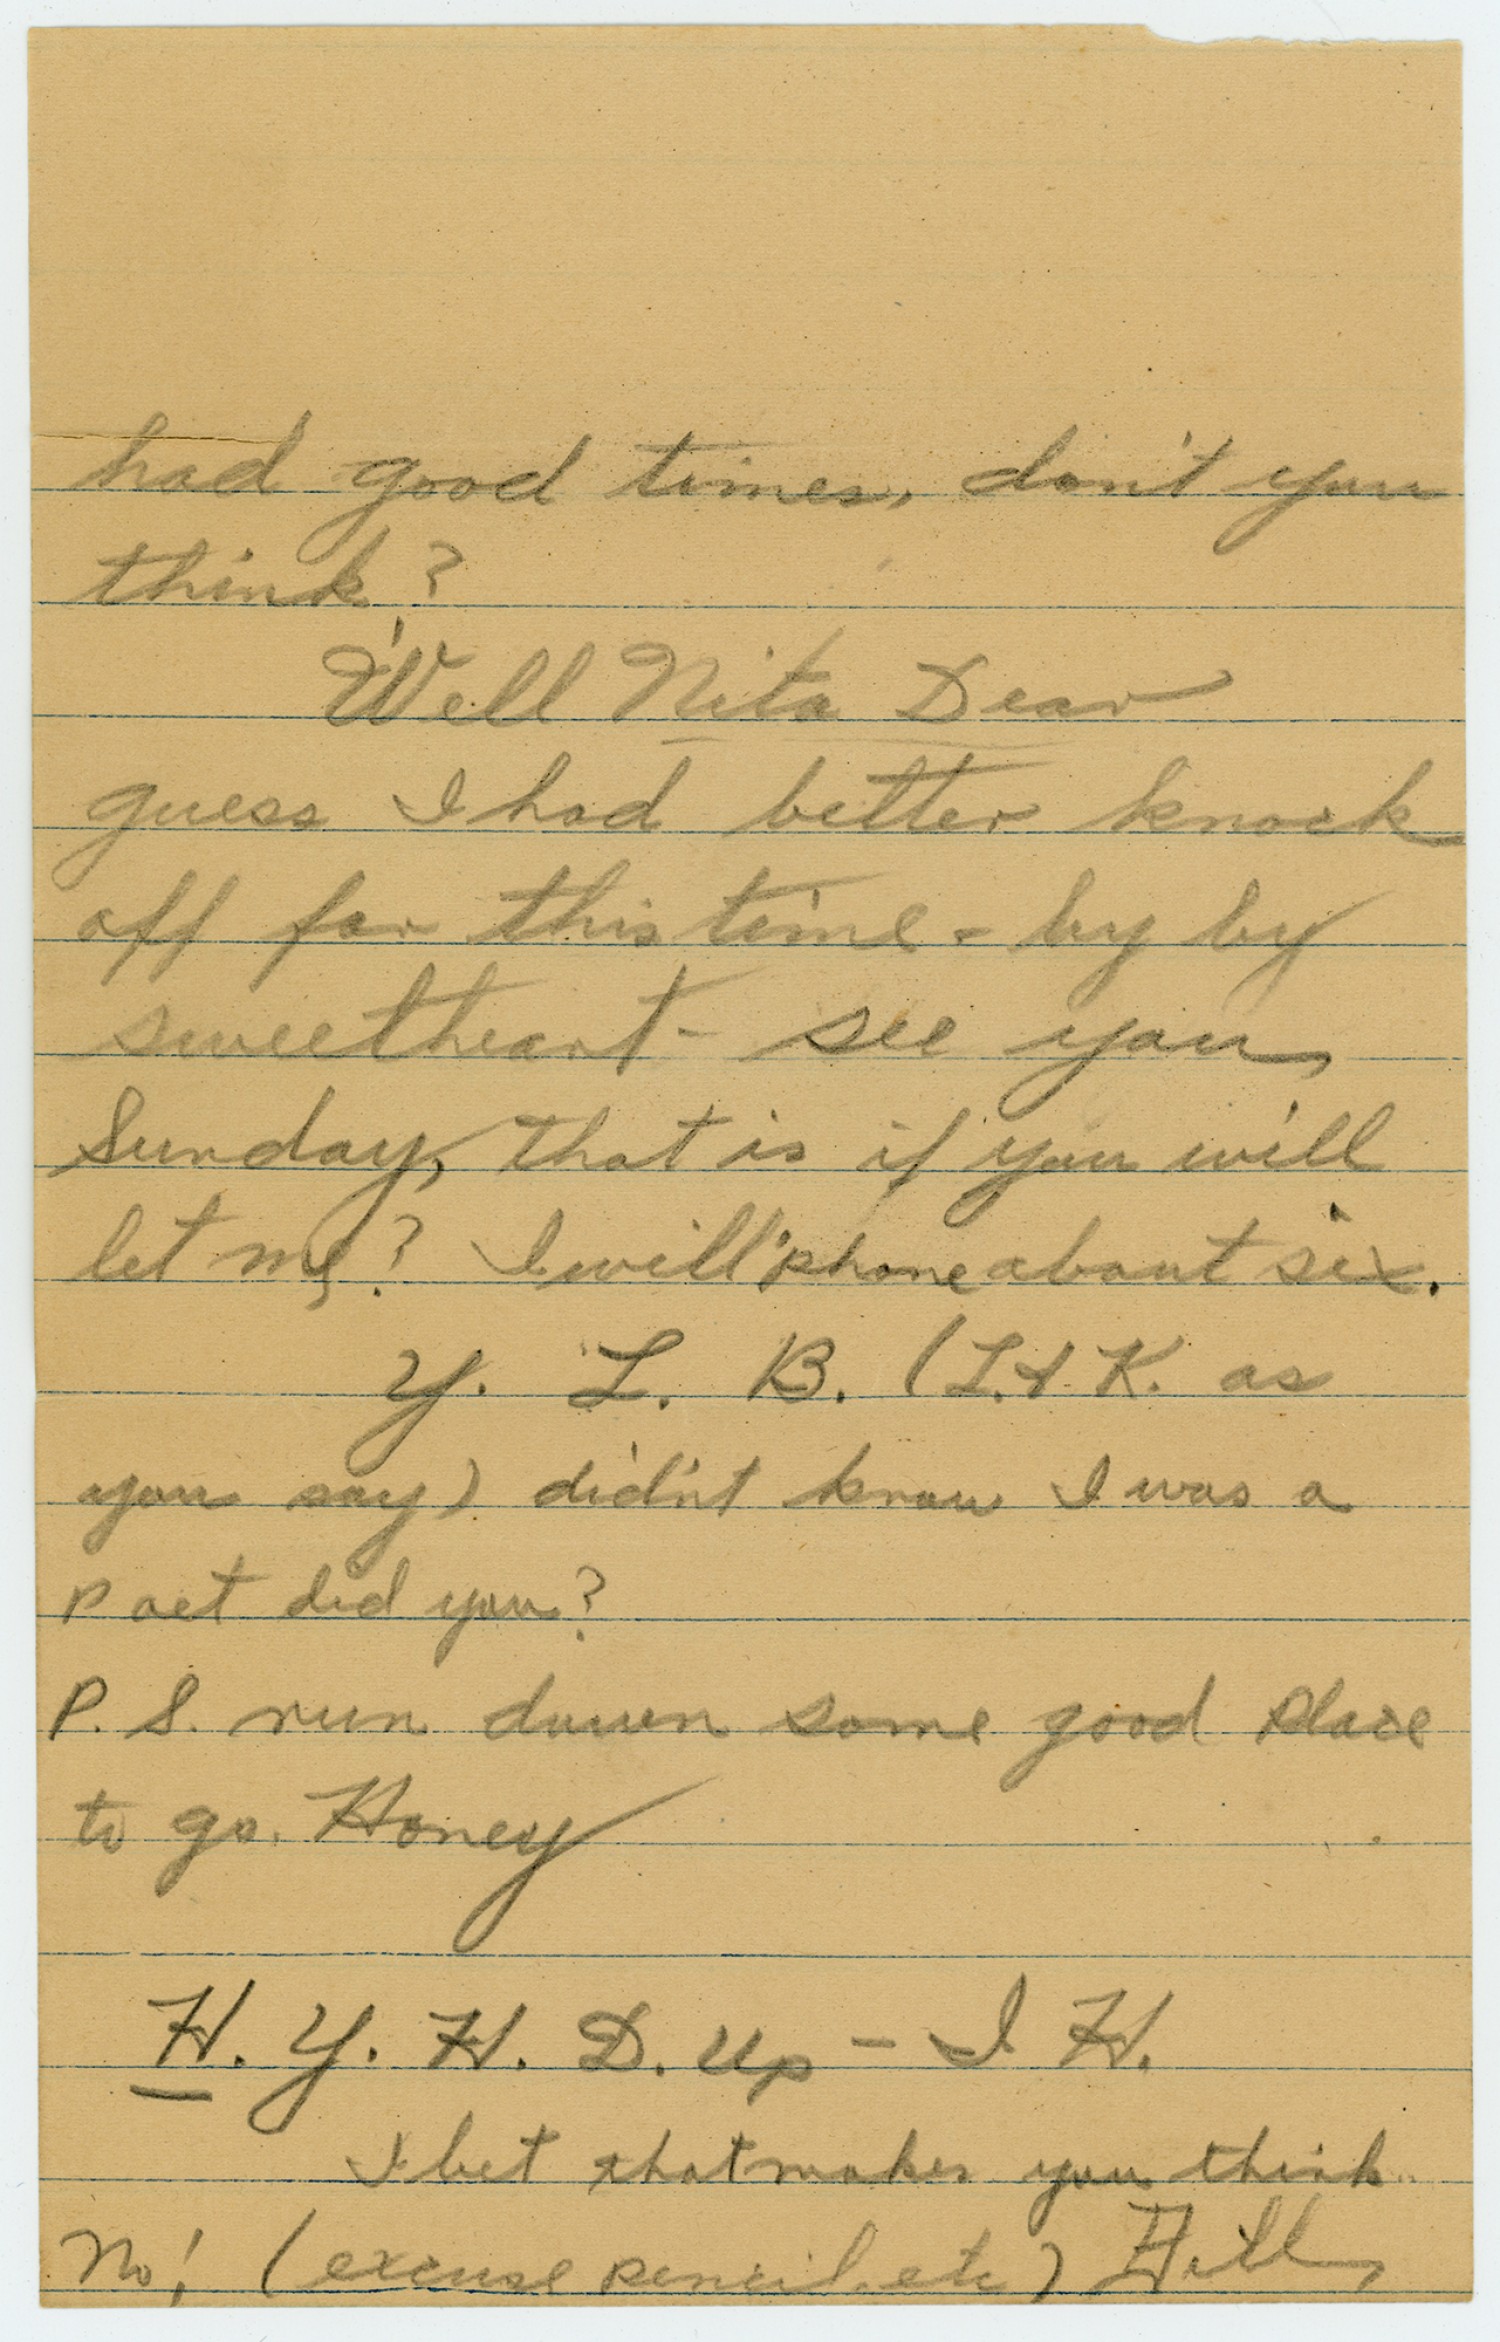 had good times, don't you
think?
Well Nita Dear
guess I had better knock
off for this time - by by
sweetheart - see you
Sunday, that is if you will
let me? I will 'phone about six.
Y. L. B. (L. & K. as
you say) did'nt know I was a
Poet did you?
P. S. run down some good place
to go. Honey
H. Y. H. D. Up - I H.
I bet that makes you think
No! (excuse pencil. etc)